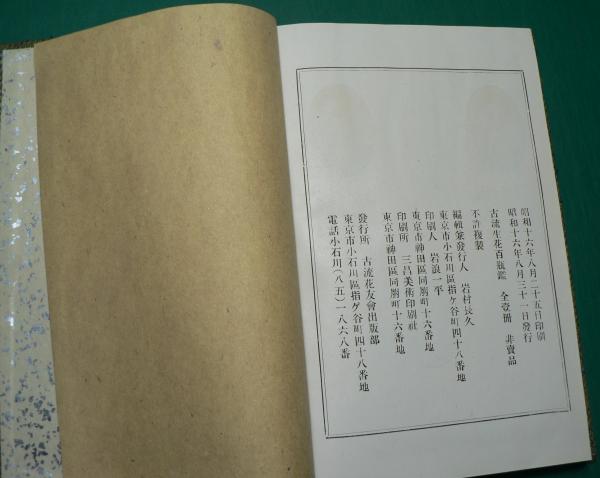 昭和十六年八月二十五日印刷
昭和十六年八月三十一日發行
古流生花百瓶鑑 全壹冊 非賣品
不許複製
編輯兼發行人 岩村長久
東京市小石川區指ヶ谷町四十八番地
印刷人 岩浪一平
東京市神田區同朋町十六番地
印刷所 三昌美術印刷社
東京市神田區同朋町十六番地
發行所 古流花友會出版部
東京市小石川區指ヶ谷町四十八番地
電話小石川(八五)一八六八番